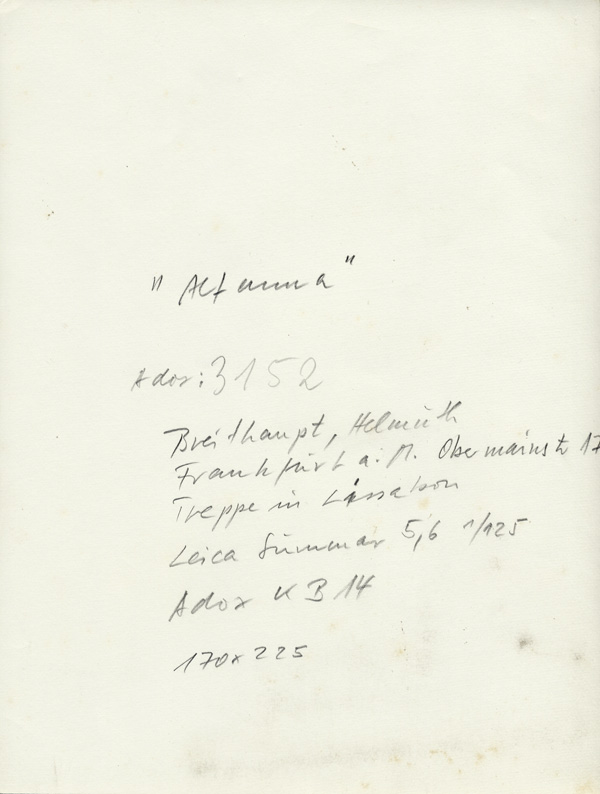 "Alfama"
Adox: 3152
Breithaupt, Helmuth
Frankfurt a. M. Obermainstr 17
Treppe in Lissabon
Leica Summar 5,6 1/125
Adox KB 14
170x225